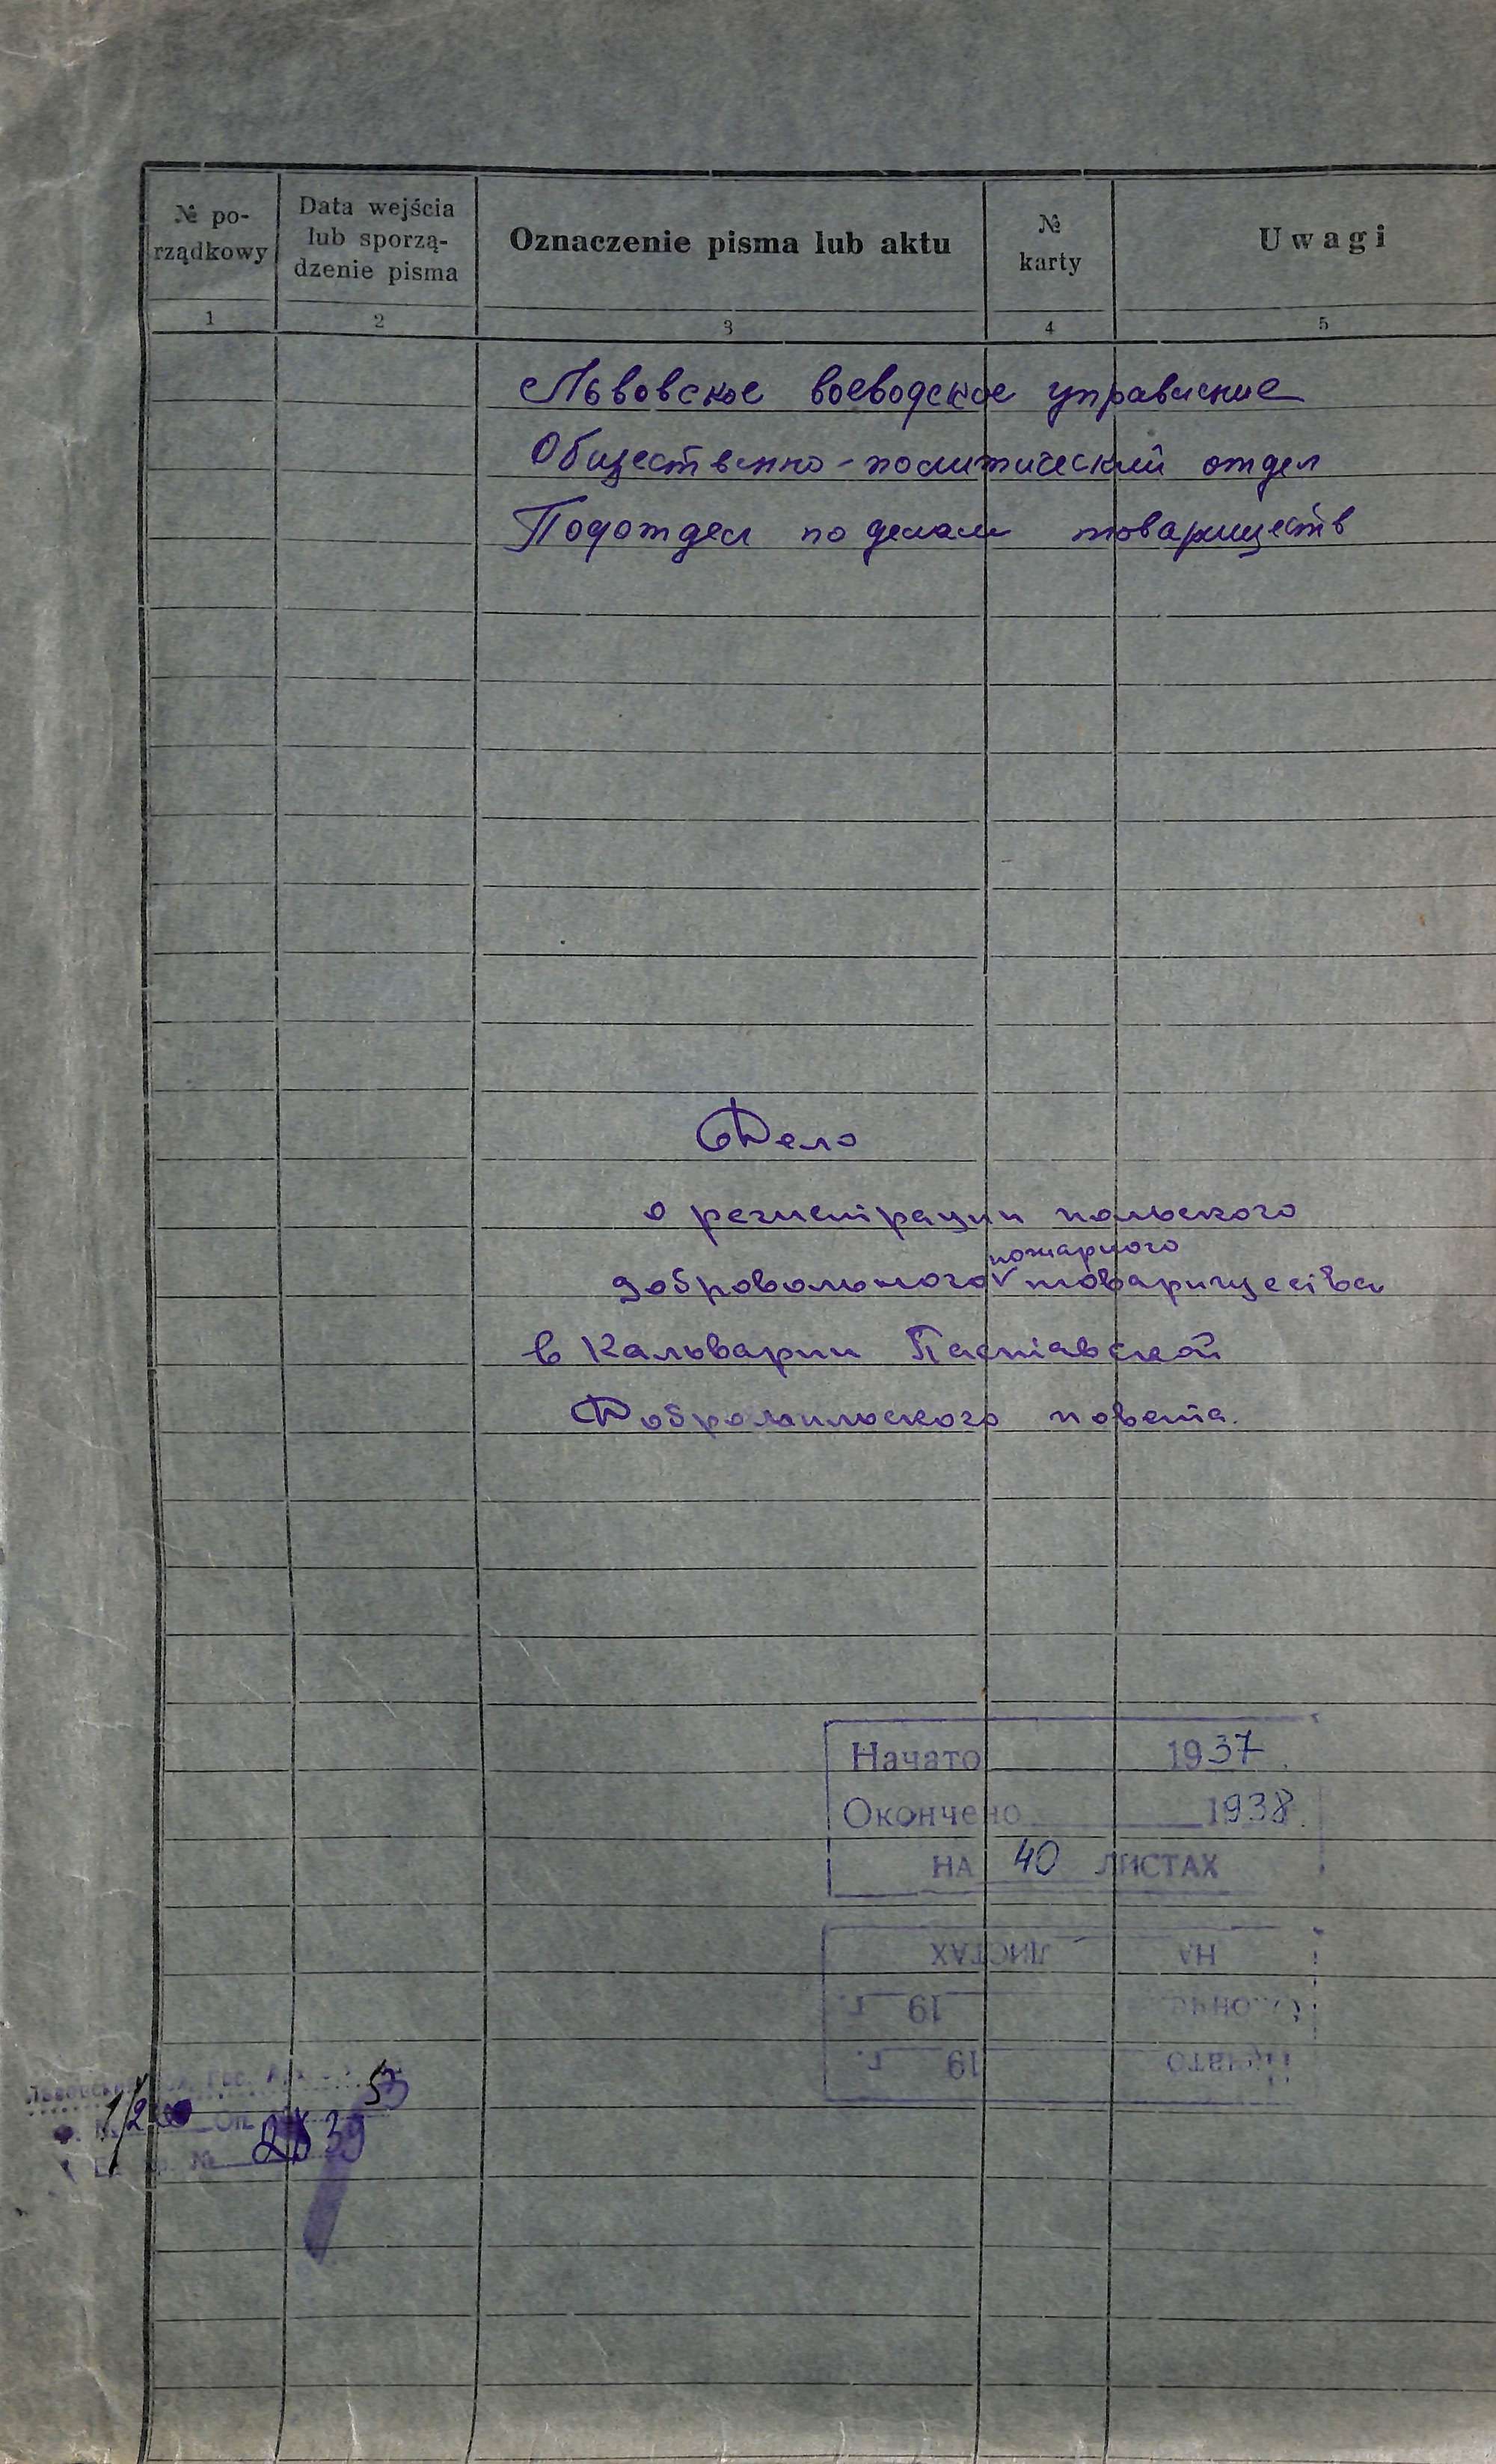 № po-
rządkowy
Data wejścia
lub sporzą-
dzenie pisma
Oznaczenie pisma lub aktu
№
karty
Uwagi
1 2 3 4 5
Львовское воеводское управление
Общественно-политический отдел
Подотдел по делам товариществ
Дело
о регистрации польского
пожарного
добровольного товарищества
в Кальварии Пастiавской
Добромильского повета.
Начато 1937
Окончено 1938
НА 40 ЛИСТАХ
НА ЛИСТАХ
19 г.
Начато 19 г.
Оп.
№